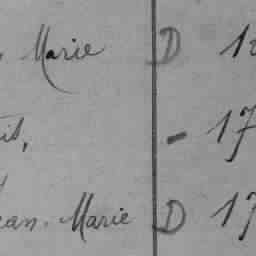 Marie D 1
- 17
Jean-Marie D 17